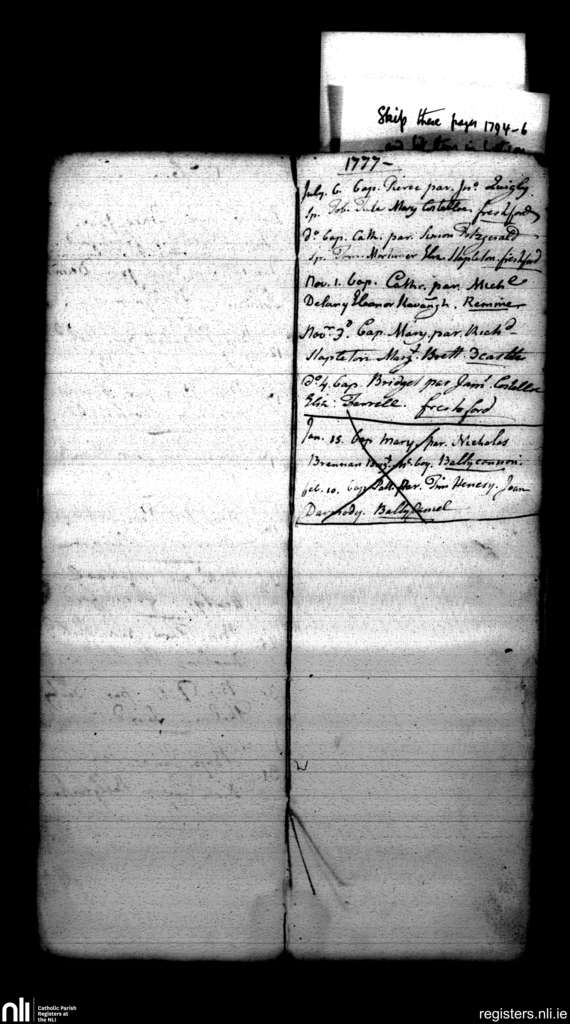 Skip these pages 1794-6
1777-
July. 6. bap. Pierce par. Jno. Quigly.
Sp. Mary Costelloe freshford
Do. bap. Cath. par. Simon Fitzgerald
Sp. Mortimer Eliz. Stapleton. freshford
Nov. 1. bap. Cathe. par. Miche
Delany Eleanor Kavangh. Remine
Novr. 3d. bap. Mary. par. Richd
Stapleton Mary. Brett. 3castle
Do. 4. bap. Bridget par James Costelloe
Eliz. Farrell. freshford
Jan. 15. bap mary par. Nicholas
Brennan Ballyconnon.
feb. 10. bap par. Tim Henesy. Joan
Darmody.
nli
Catholic Parish
Registers at
the NLI
registers.nli.ie